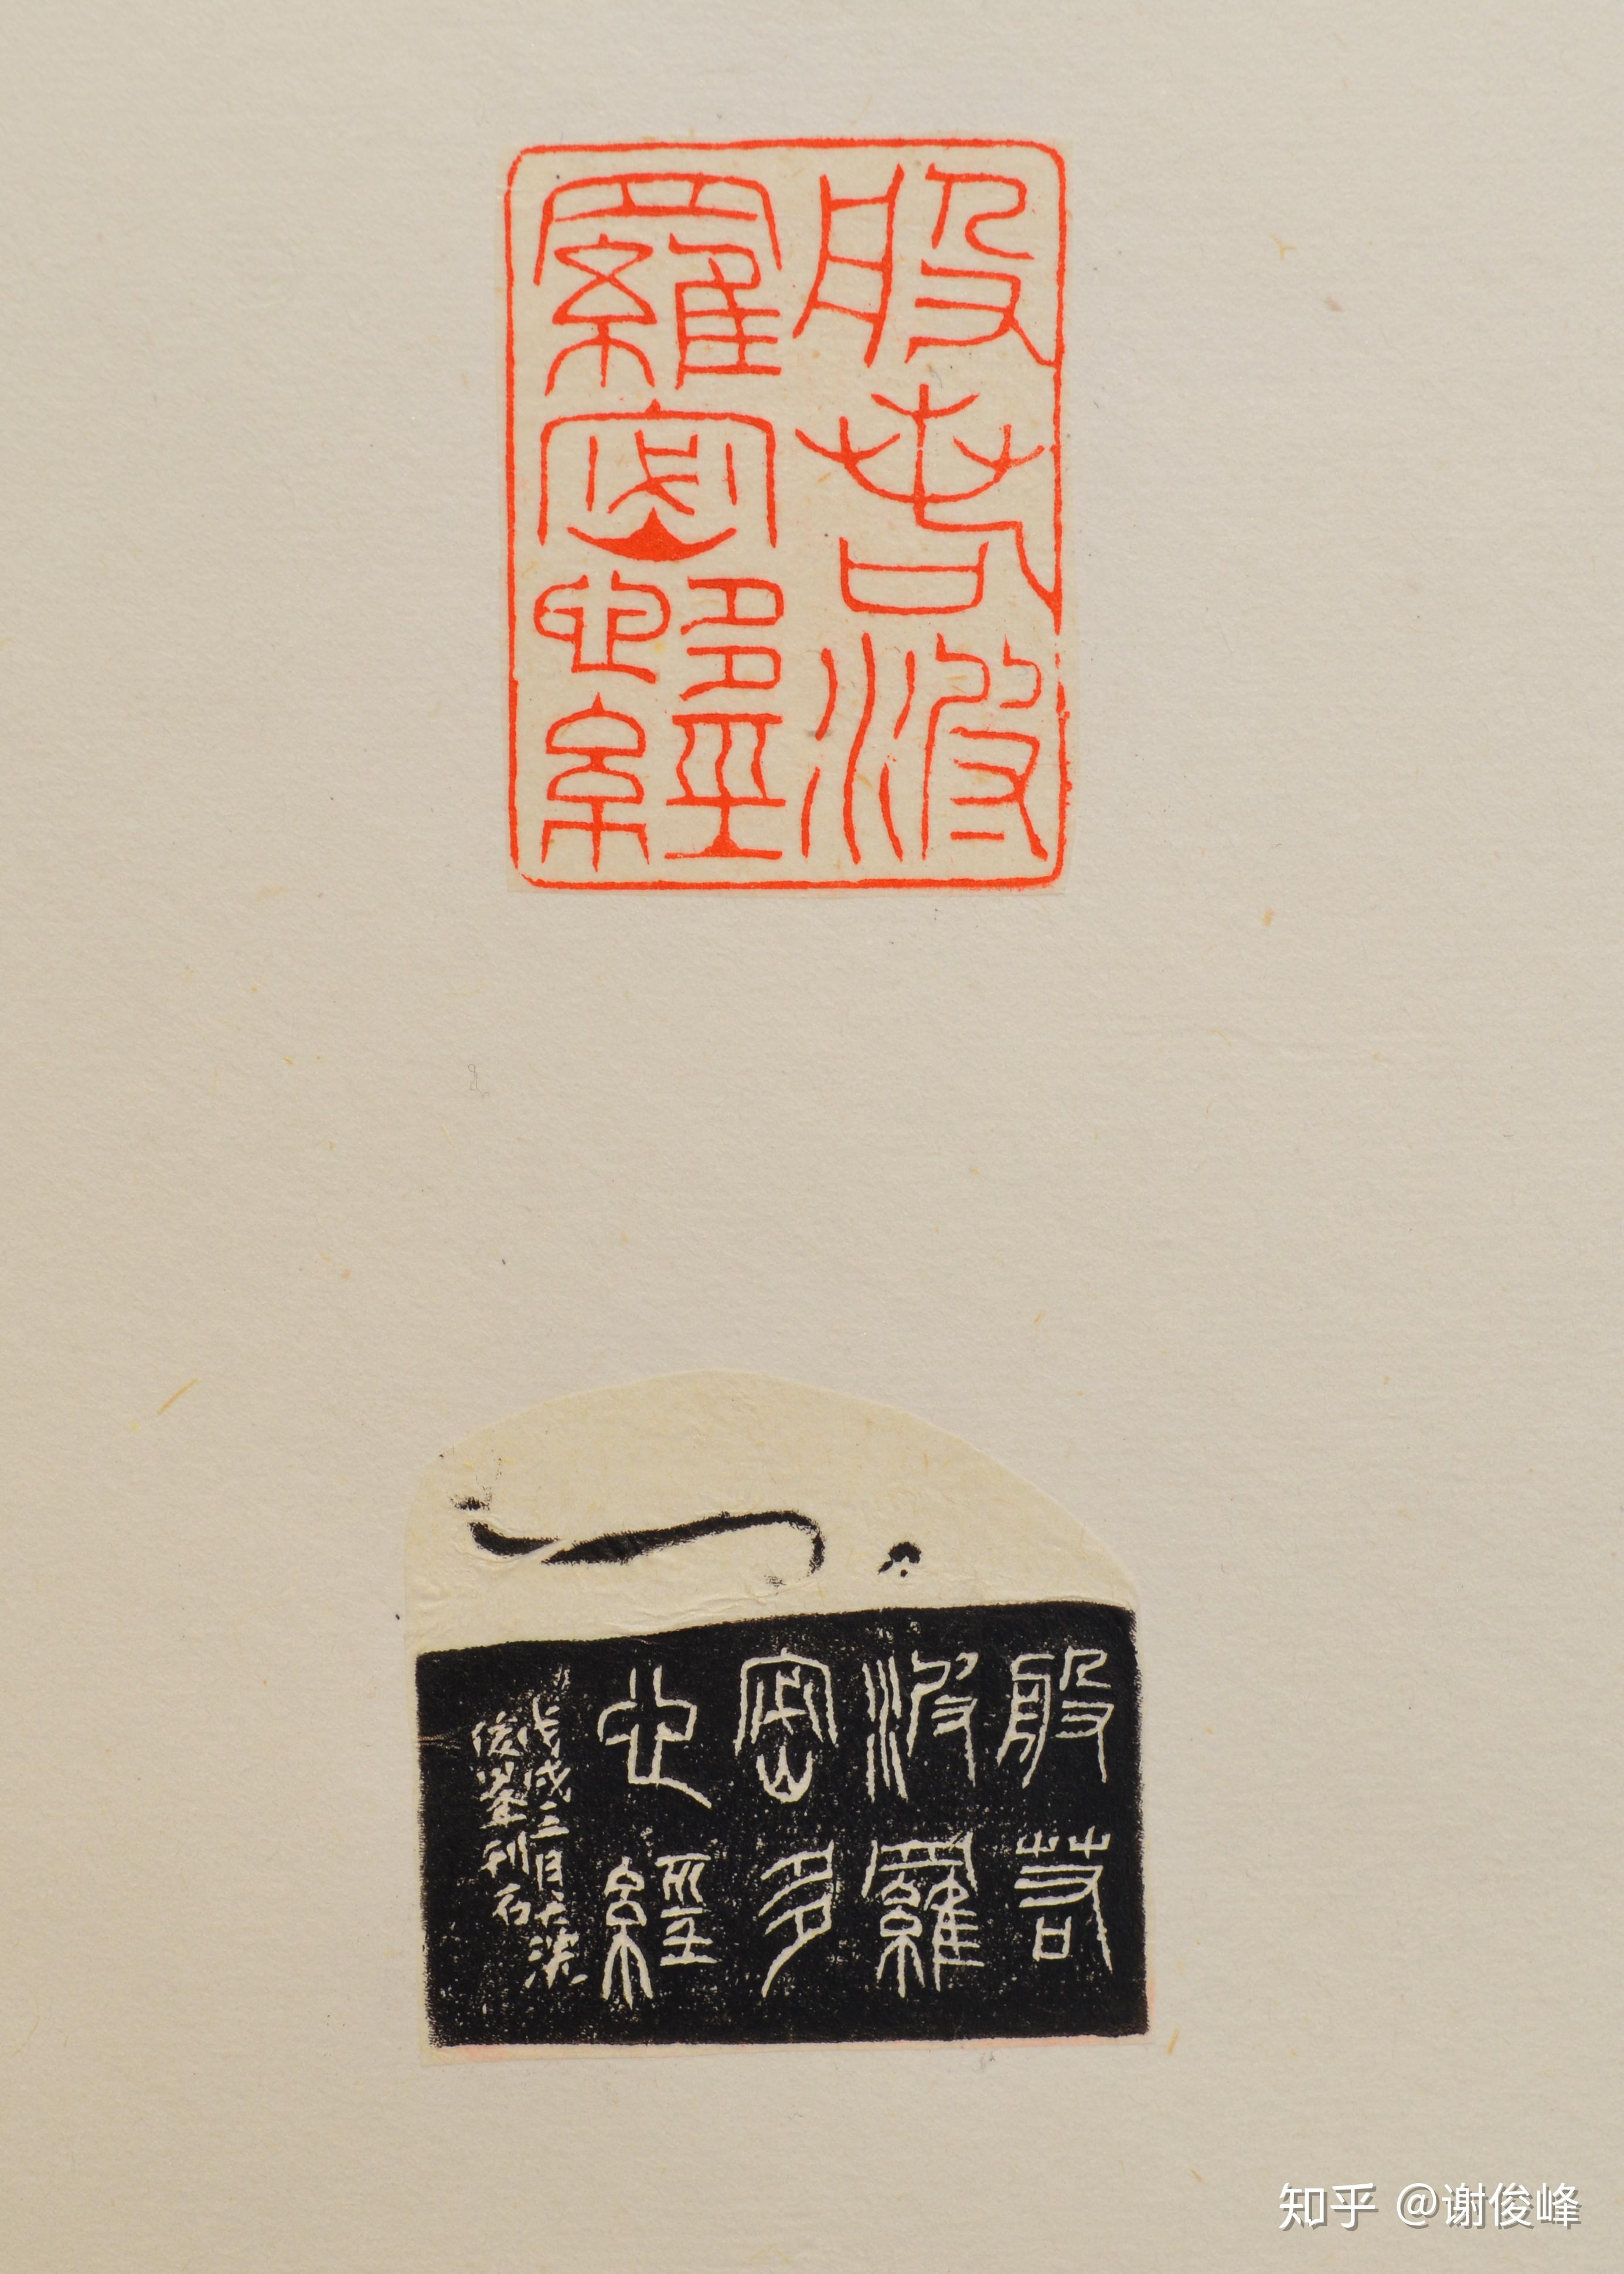 般若波
羅密多心經
般若
波羅
密多
心經
戊戌三月大梁
俊峯刊石
知乎 @谢俊峰